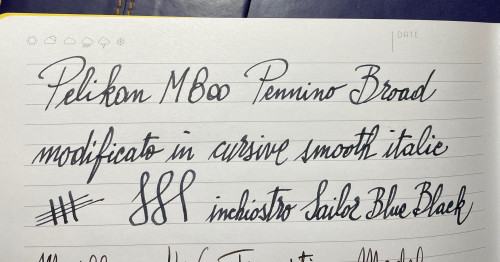 DATE
Pelikan M800 Pennino Broad
modificato in cursive smooth italic
inchiostro Sailor Blue Black